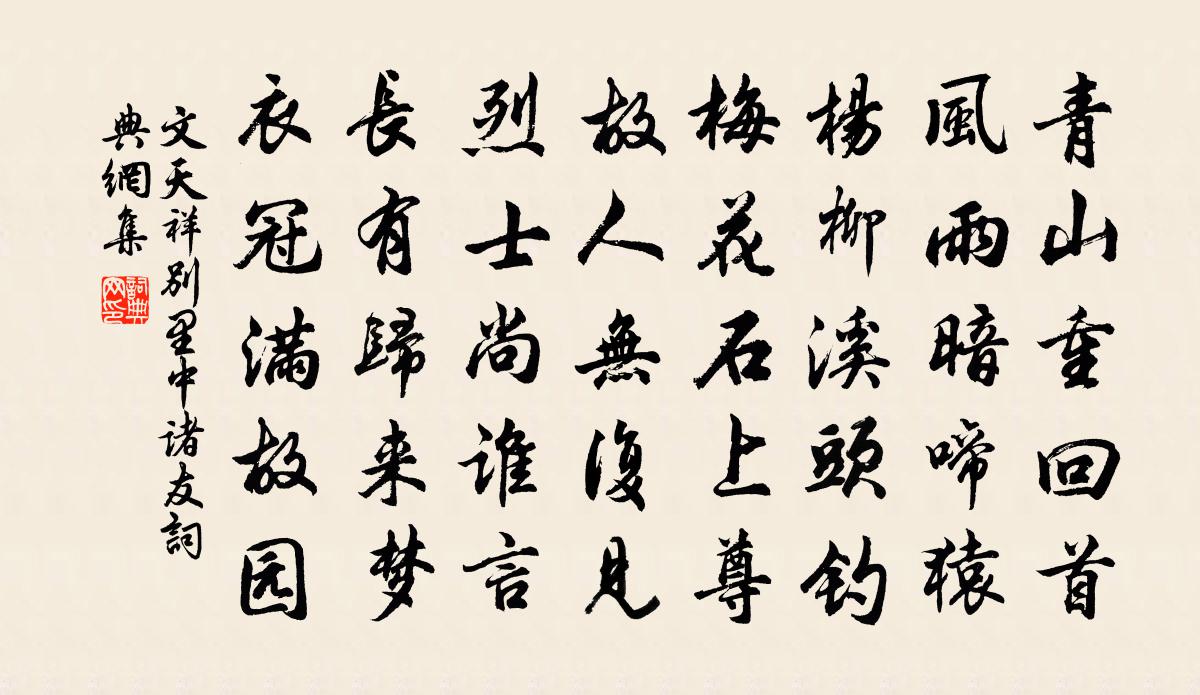 青山重回首
風雨暗啼猿
楊柳溪頭釣
梅花石上尊
故人無復見
烈士尚誰言
長有歸来梦
衣冠满故园
文天祥别里中诸友詞
典網集
詞典网印